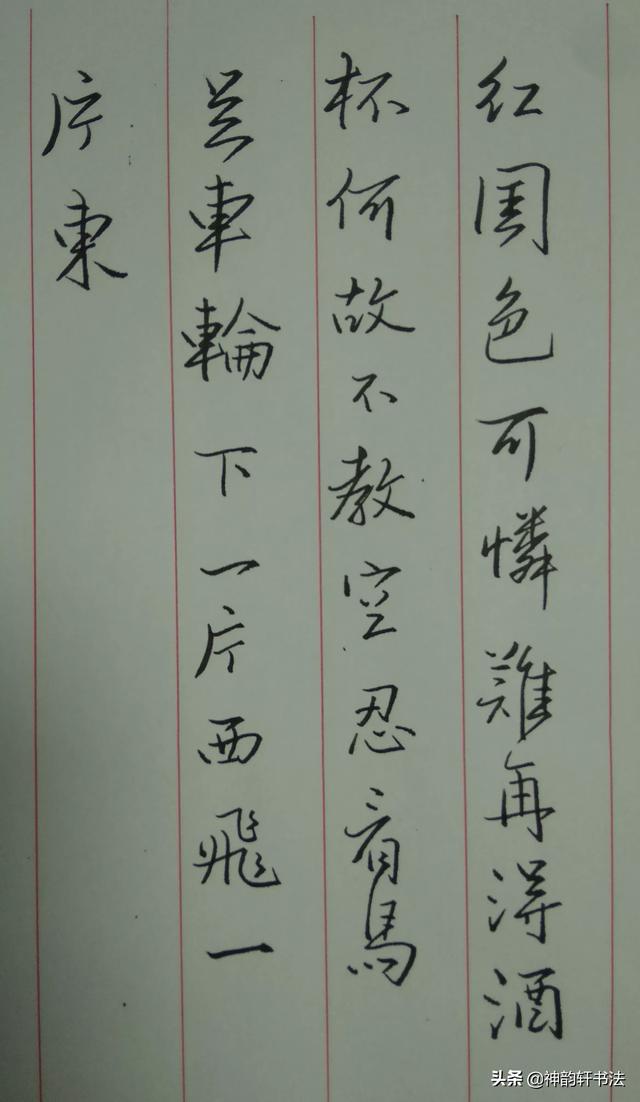 红闺色可憐難再得酒
杯何故不教空忍看馬
足車輪下一片西飛一
片東
头条 @神韵轩书法